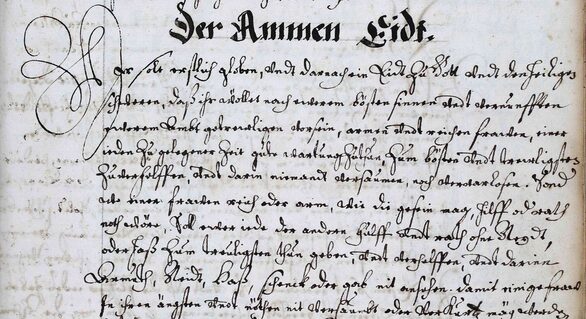 Der Ammen Eidt.
Ihr solt erstlich globen, undt darnach ein Eidt zu Gott undt den heiligen
schweren, daß ihr wöllet nach ewerem besten sinnen undt vernunfften
ewerem Ambt getrewlichen vorsein, armen undt reichen frawen, einer
ieden zu gelegener Zeit gute wartung zuhan zum besten undt trewlichsten
zuverhelffen, undt darin niemandt versaumen, noch verwarlosen. Sond
wo einer frawen reich oder arm, wie die gesein mag, hilff od rath
noth were, Soll ewer iede der andern hilff undt rath ohne
oder haß zum treulichsten thun geben undt verhelffen, undt darinn
Neidt, Haß, schenck oder gab nit ansehen. damit
In ihren ängsten undt nöthen nit versaumbt oder verkürtz mög werden